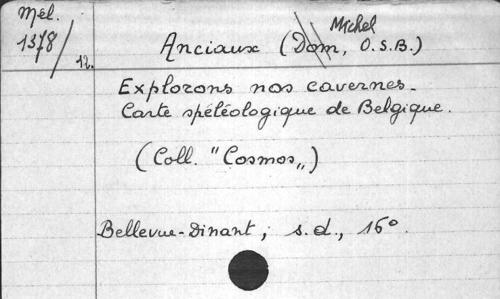 Mél.
1378/12.
Michel
Anciaux (Dom, O.S.B.)
Explorons nos cavernes.
Carte spéléologique de Belgique.
(Coll. "Cosmos„)
Bellevue-Dinant, s.d., 16°.